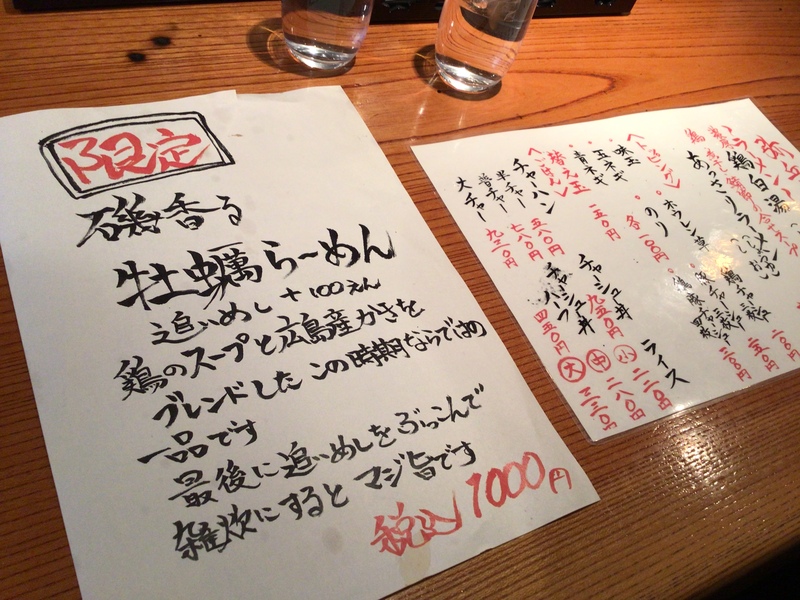 限定
磯香る
牡蠣らーめん
追いめし +100えん
鶏のスープと広島産かきを
ブレンドしたこの時期ならではの
一品です
最後に追いめしをぶっこんで
雑炊にすると マジ旨です
税込1000円
鶏白湯
あっさりラーメン
ホウレン草
のり
各一〇〇円
味玉
玉ネギ
青ネギ
一五〇円
替え玉
チャーハン
半チャー 五八〇円
普チャー 七八〇円
大チャー 九三〇円
チャーシュー丼 九五〇円
チャーシュー丼ハーフ 四五〇円
ライス
小 二二〇円
中 二八〇円
大 三三〇円